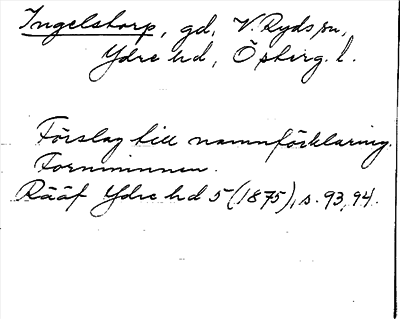 Ingelstorp, gd, V. Ryds sn,
Ydre hd, Österg. l.
Förslag till namnförklaring.
Fornminnen.
Rääf Ydre hd 5 (1875), s. 93, 94.